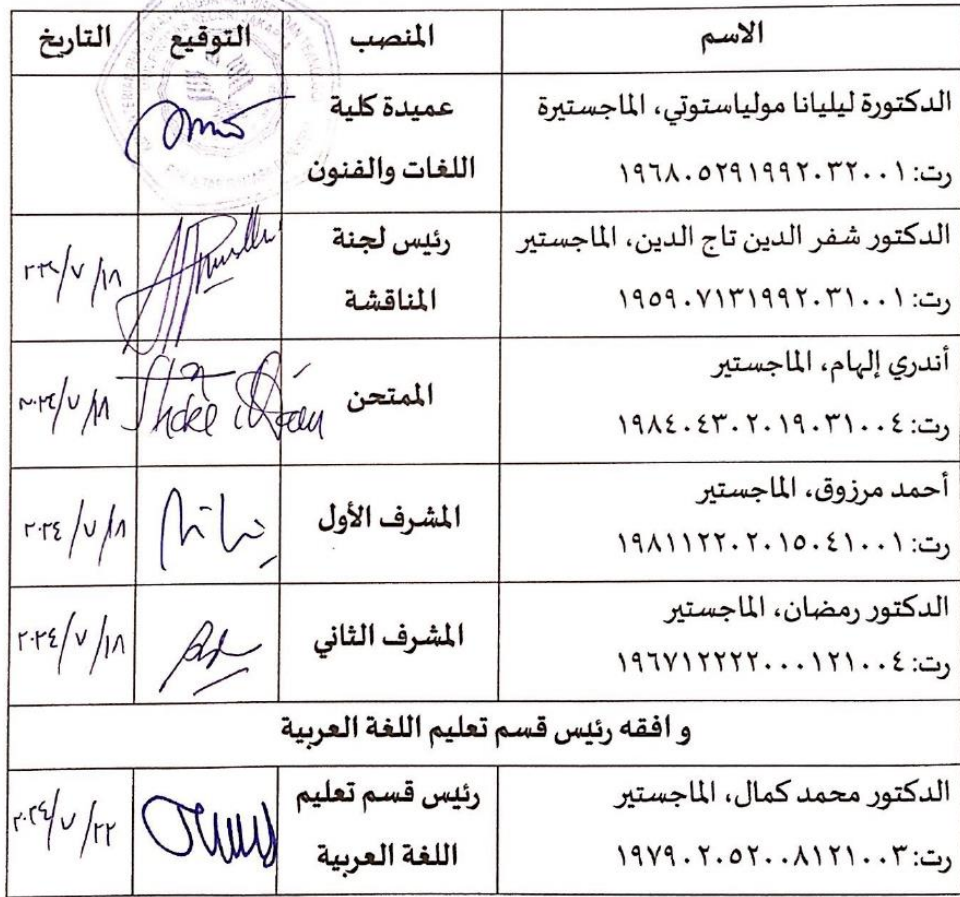 الاسم المنصب التوقيع التاريخ
الدكتورة ليليانا مولياستوتي، الماجستيرة
رت: ١٩٦٨٠٥٢٩١٩٩٢٠٣٢٠٠١
عميدة كلية
اللغات والفنون
الدكتور شفر الدين تاج الدين، الماجستير
رت: ١٩٥٩٠٧١٣١٩٩٢٠٣١٠٠١
رئيس لجنة
المناقشة
أندري إلهام، الماجستير
رت: ١٩٨٤٠٤٣٠٢٠١٩٠٣١٠٠٤
الممتحن
١٨/٧/٢٠٢٤
أحمد مرزوق، الماجستير
رت: ١٩٨١١٢٢٠٢٠١٥٠٤١٠٠١
المشرف الأول
١٨/٧/٢٠٢٤
الدكتور رمضان، الماجستير
رت: ١٩٦٧١٢٢٢٢٠٠٠١٢١٠٠٤
المشرف الثاني
١٨/٧/٢٠٢٤
و افقه رئيس قسم تعليم اللغة العربية
الدكتور محمد كمال، الماجستير
رت: ١٩٧٩٠٢٠٥٢٠٠٨١٢١٠٠٣
رئيس قسم تعليم
اللغة العربية
٢٢/٧/٢٠٢٤